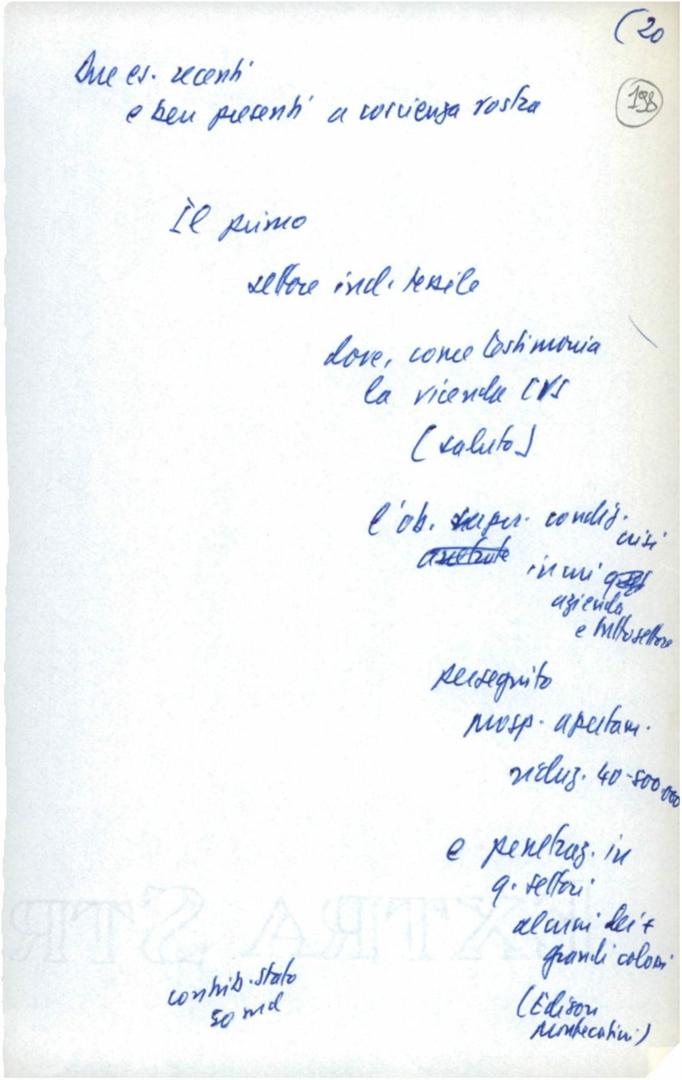 (20
198
Due es. recenti
e ben presenti a coscienza vostra
Il primo
settore ind. tessile
dove, come testimonia
la vicenda CVS
(saluto)
l'ob. super. condiz. crisi
in cui
azienda
e tutto settore
perseguito
prosp. apertam.
riduz. 40-500000
e penetraz. in
q. settori
alcuni dei +
grandi colossi
(Edison
Montecatini)
contrib. stato
50 md
EXTRA STR